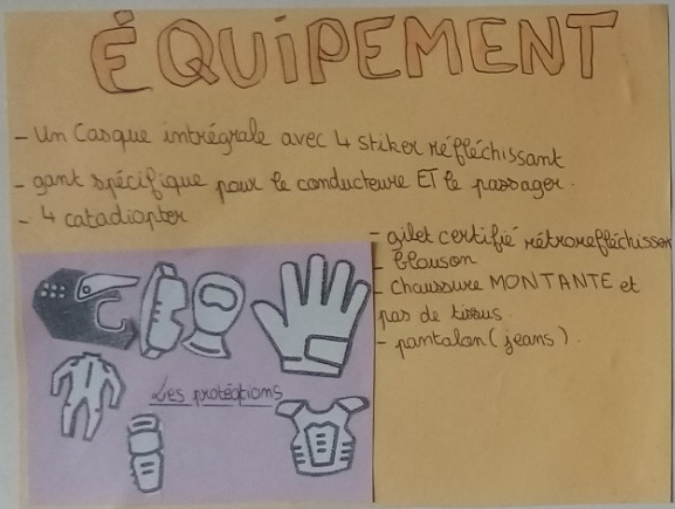 ÉQUIPEMENT
- Un Casque intrégrale avec 4 stiker réfléchissant
- gant spécifique pour le conducteure ET le passager.
- 4 catadiopter
- gilet certifié rétrorefléchisson
- blouson
- chaussure MONTANTE et
pas de tissus.
- pantalon (jeans).
Les protéctions